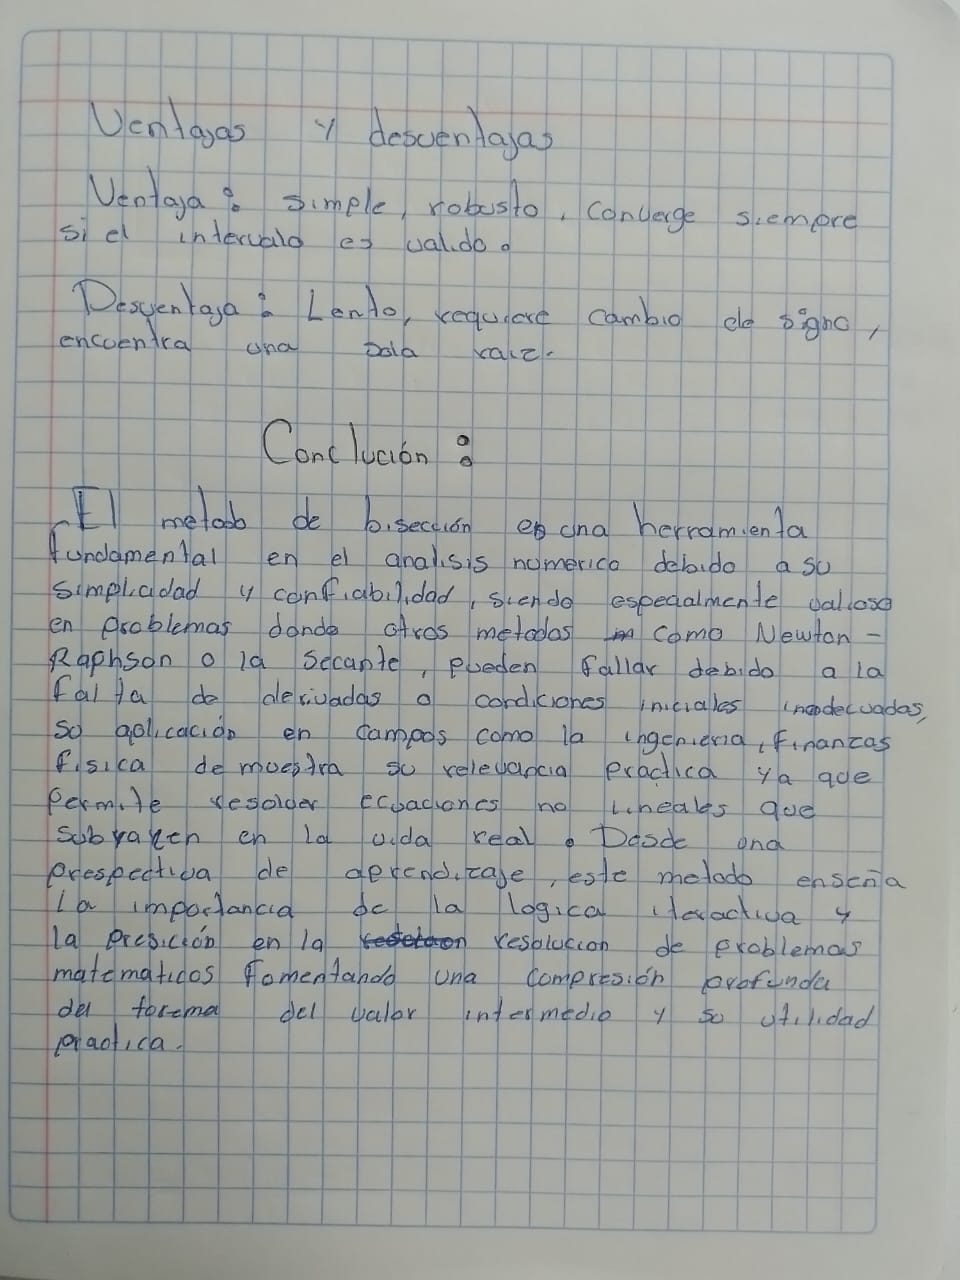 Ventajas y desventajas
Ventaja: simple, robusto, converge siempre
si el intervalo es valido.
Desventaja: Lento, requiere cambio de signo,
encuentra una sola raiz.
Conclución:
El metodo de bisección es una herramienta
fundamental en el analisis numerico debido a su
simplicidad y confiabilidad, siendo especialmente valioso
en problemas donde otros metodos como Newton-
Raphson o la secante, pueden fallar debido a la
falta de derivadas o condiciones iniciales inadecuadas,
so aplicación en campos como la ingenieria, finanzas
fisica demuestra su relevancia practica ya que
permite resolder ecuaciones no lineales que
subyacen en la vida real. Desde una
prespectiva de aprendizaje, este metodo enseña
la importancia de la logica iteractiva y
la presición en la resolucion de problemas
matematicos fomentando una compresión profunda
del torema del valor intermedio y so utilidad
practica.